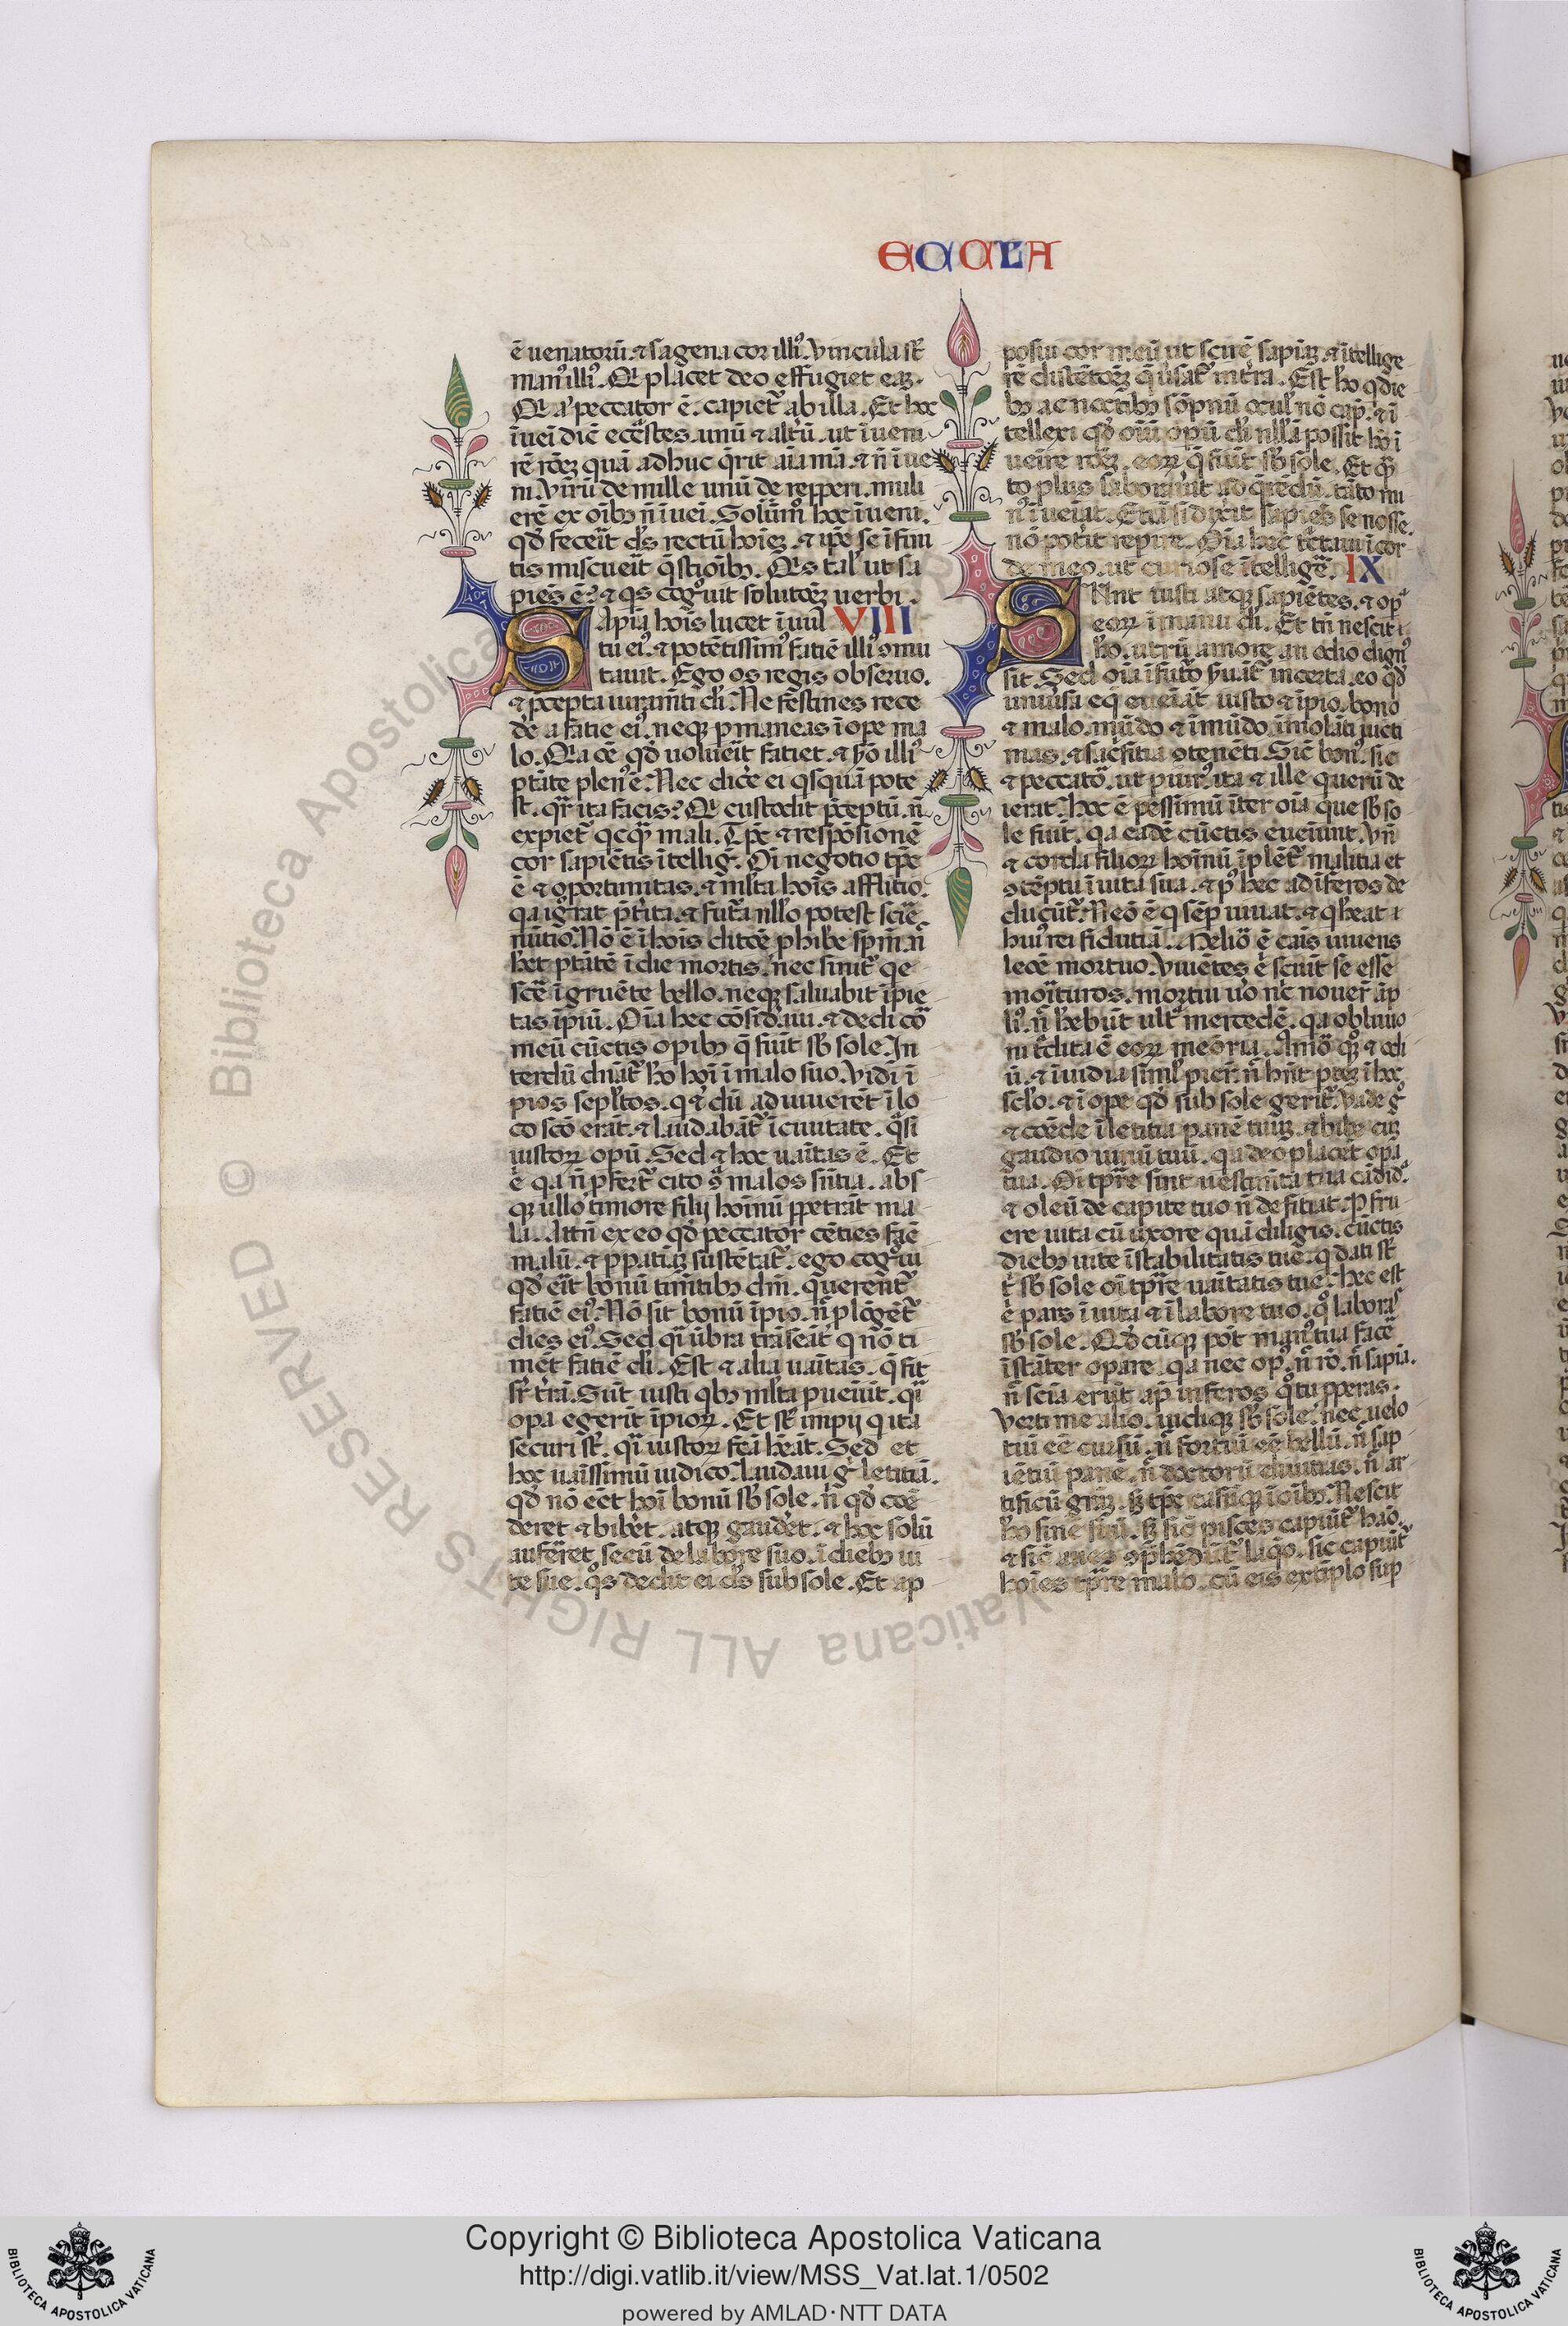 ECCLA
ē uenatorū. ⁊ sagena cor illiꝰ. Vincula st̄
manꝰ illiꝰ. Qⁱ placet deo effugiet eaꝫ.
Qⁱ aͭ peccator ē. capiet᷑ ab illa. Et hoc
īueī dic̄ eccˡestes. unū ⁊ altͬū. ut īueni
rē rōeꝫ quā adhuc q̄rit aīa mā. ⁊ n̄ īue
ni. Virū de mille unū de repperi. muli
erē ex oībꝫ n̄ īueī. Solūmͦ hoc īueni.
qd̓ fecēit dˢ̄ rectū hoīeꝫ. ⁊ ip̄e se īfini
tis miscueīt q̄stioībꝫ. Qˢ tal̓ ut sa
piēs ē? ⁊ qˢ cogͦuit solutōeꝫ uerbi.
Sapīa hoīs lucet ī uul VIII
tu eiꝰ. ⁊ potētissimꝰ faciē illiꝰ ꝯmu
tauit. Ego os regis obseruo.
⁊ p̄cepta iuram̄ti di̓. Ne festines rece
dē a facie eiꝰ. neqꝫ ꝑmaneas ī oꝑe ma
lo. Qa oē qd̓ uoluēit faciet. ⁊ s̓mō illiꝰ
ptāte plenꝰ ē. Nec dic̓e ei qͥsquā pote
st. qͬ ita facis? Qⁱ custodit p̄ceptū. n̄
expiet᷑ qͥcqͣ mali. Tp̄c ⁊ respōsionē
cor sapiētis ītelligͭ. Oī negocio tp̄c
ē ⁊ oportunitas. ⁊ ml̓ta hoīs afflictio.
qa igͦrat p̄t̓ita. ⁊ futͣa nll̓o potest scīe
nūtio. Nō ē ī hoīs ditōe ꝓhiƀe spm̄. n̄
ħet ptātē ī die mortis. nec sinit᷑ qͥe
sc̓e īgruēte bello. neqꝫ saluabit īpie
tas īpiū. Oīa hec cōsid̓aui. ⁊ dedi cor̄
meū cūctis oꝑibꝫ q̄ fiūt sƀ sole. In
terdū dn̄at᷑ ħo hoī ī malo suo. Vidi ī
pios sepl̓tos. qⁱ ⁊ dū aduiuerēt ī lo
co scō erāt. ⁊ laudabāt᷑ ī ciuitate. qͣsi
iustoꝝ opū. Sed ⁊ hoc uaītas ē. Et
.n. qa n̄ ꝓfert᷑ cito ꝯͣ malos sn̄tia. abs
qꝫ ullo timore filij hoīnū ꝑpetrāt ma
la. Attn̄ ex eo qd̓ peccator cēties fac̄
malū. ⁊ ꝑ patiāꝫ sustētat᷑. ego cogͦui
qd̓ eīt bonū tim̄tibꝫ dm̄. qͥ uerent᷑
faciē eiꝰ. Nō sit bonū īpio. n̄ ꝓlōgēt᷑
dies eiꝰ. Sed qͣi ūbra trāseāt qⁱ nō ti
mēt faciē di̓. Est ⁊ alia uaītas. q̄ fit
sr̄ t̓rā. Sūt iusti qͥbꝫ ml̓ta ꝓueniūt. qͣi
oꝑa egerīt īpioꝝ. Et st̄ impij qⁱ ita
securi st̄. qͣi iustoꝝ fcā ħeāt. Sed et
hoc uaīssimū iudico. Laudaui gͦ letitiā.
qd̓ nō eēt hoī bonū sƀ sole. n̄ qd̓ coē
deret ⁊ bibēt. atqꝫ gaudēt. ⁊ hoc solū
auferret secū de labore suo. ī diebꝫ ui
te sue. qͦs dedit ei dˢ̄ sub sole. Et ap
posui cor meū ut scirē sapiāꝫ. ⁊ ītellige
rē distētōeꝫ q̄ ūsat᷑ in t̓ra. Est ħo qͥ die
bꝫ ac noctibꝫ sōpnū ocul̓ nō cap̄. ⁊ ī
tellexi qd̓ oīū opū di̓ nllā possit ħo ī
uenire rōeꝫ. eoꝝ q̄ fiūt sƀ sole. Et qͣ
to plus laborauīt ad qͥrēdū. tāto mi
nꝰ īueiāt. Etiā si dixīt sapiēs se nosse.
nō pot̓it reꝑire. Oīa hec tͣctaui ī cor
de meo. ut curiose ītelligerē. IX
Sunt iusti atqꝫ sapiētes. ⁊ opͣ
eoꝝ ī manu di̓. Et tn̄ nescit
ħo. utrū amore an odio dignꝰ
sit. Sed oīa ī futͦo s̓uāt᷑ incerta. eo qd̓
uniūsa eqͤ eueīāt iusto ⁊ īpio. bono
⁊ malo. mūdo ⁊ īmūdo. īmolāti uicti
mas. ⁊ sacͥficia ꝯtēnēti. Sic̄ bonꝰ. sic
⁊ peccatoͬ. ut ꝑiurꝰ. ita ⁊ ille qui uerū de
ierat. Hoc ē pessimū īter oīa que sƀ so
le fiūt. qa eadē cūctis eueniūnt. Vn̄
⁊ corda filioꝝ hoīnū īplēt᷑ malitia et
ꝯtēptu ī uita sua. ⁊ pꝰ hec ad īferos de
ducūt᷑. Neō ē qⁱ sēp uiuat. ⁊ qⁱ ħeat
huiꝰ rei fidutiā. Melioͬ ē canīs uiuens
leōe mortuo. Viuētes .n. sciūt se esse
morituros. mortui u̓o nͨ nouer̄ āp
liꝰ. n̄ ħebūt ult̓ mercedē. qa obliuio
ni tͣdita ē eoꝝ meoria. Amoͬ qͦqꝫ ⁊ odi
ū. ⁊ īuidia siml̓ ꝑier̄. n̄ hn̄t pteꝫ ī hoc
scl̓o. ⁊ ī oꝑe qd̓ sub sole gerit᷑. Vade gͦ
⁊ coēde ī letitia panē tuuꝫ. ⁊ bibe cuꝫ
gaudio uinū tuū. qa deo placēt oꝑa
tua. Oī tp̄re sint uestim̄ta tua cādidͣ.
⁊ oleū de capite tuo n̄ deficiat. Pfru
ere uita cū uxore quā diligis. cūctis
diebꝫ uite īstabilitatis tue. qⁱ dati st̄
tͥ sƀ sole oī tp̄re uaītatis tue. hec est
.n. pars ī uita ⁊ ī labore tuo. qͦ laboras
sƀ sole. Qd̓cūqꝫ pōt manꝰ tua fac̓e
īstāter oꝑare. qa nec opꝰ. n̄ rō. n̄ sapīa.
n̄ scīa erūt apͩ inferos qͦ tu ꝓꝑas.
Verti me alio. uidiqꝫ sƀ sole. nec uelo
ciū eē cursū. n̄ fortiū eē bellū. n̄ sap
iētiū panē. n̄ doctorū diuitias. n̄ ar
tificū grāꝫ. sꝫ tp̄c casūqꝫ ī oībꝫ. Nescit
ħo finē suū. sꝫ sic̄ pisces capiūt᷑ hāo.
⁊ sic̄ aues ꝯp̄hēdūt᷑ laqͦo. sic capiūt᷑
hoīes tp̄re malo. cū eis extīplo suꝑ
Copyright © Biblioteca Apostolica Vaticana
http://digi.vatlib.it/view/MSS_Vat.lat.1/0502
powered by AMLAD·NTT DATA
BIBLIOTECA APOSTOLICA VATICANA
BIBLIOTECA APOSTOLICA VATICANA
© Biblioteca Apostolica Vaticana ALL RIGHTS RESERVED